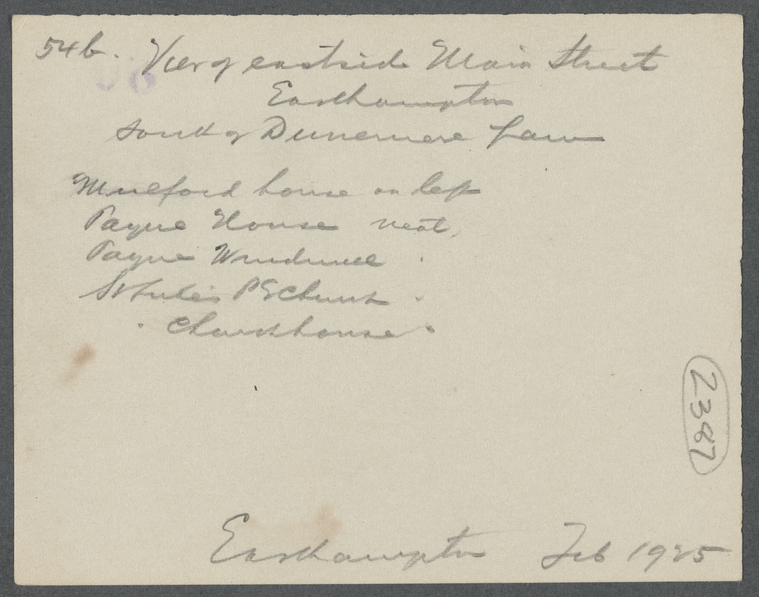 54b. View of eastside Main Street
Easthampton
south of Dunemere Lane
Mulford house on left
Payne House next.
Payne Windmill "
St Luke's P E Church "
" Churchhouse "
2387
Easthampton Feb 1925